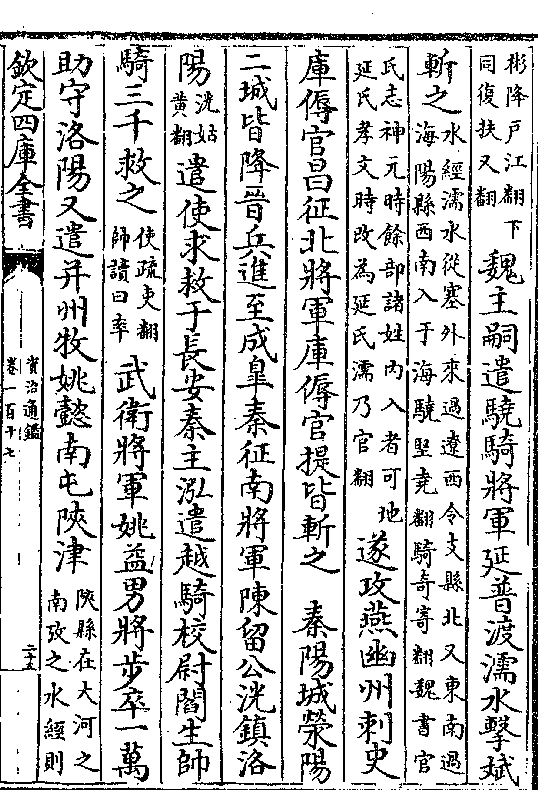 彬降戸江翻下同復扶又翻魏主嗣遣驍騎將軍延普渡濡水擊斌
斬之水經濡水從塞外來過遼西令支縣北又東南過海陽縣西南入于海驍堅堯翻騎奇寄翻魏書官
氏志神元時餘部諸姓內入者可地延氏孝文時改為延氏濡乃官翻遂攻燕幽州刺史
庫傉官昌征北將軍庫傉官提皆斬之 秦陽城滎陽
二城皆降晉兵進至成皐秦征南將軍陳留公洸鎮洛
陽洸姑黄翻遣使求救于長安秦主泓遣越騎校尉閻生師
騎三千救之使疏吏翻師讀曰率武衛將軍姚益男將步卒一萬
助守洛陽又遣并州牧姚懿南屯陜津陜縣在大河之南攷之水經則
欽定四庫全書
資治通鑑
卷一百十七
二十五